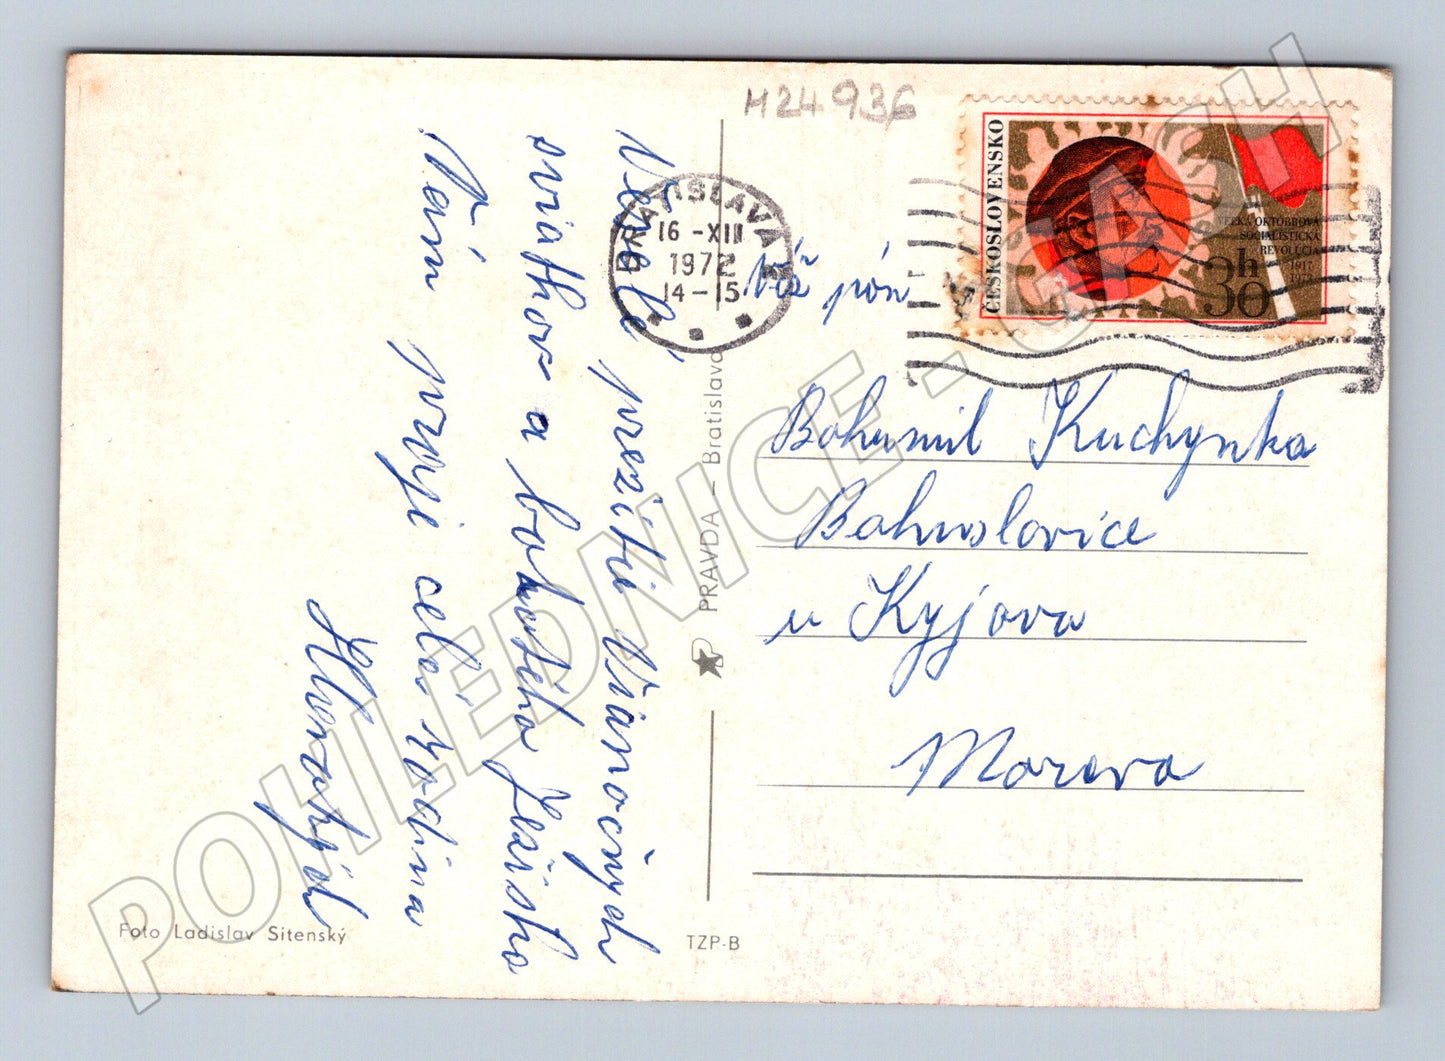 M24936
ČESKOSLOVENSKO
VEĽKÁ OKTÓBROVÁ
SOCIALISTICKÁ
REVOLÚCIA
1917
1972
30h
BRATISLAVA
16 -XII
1972
14-15
Veselé prežitie Vianočných
sviatkov a bohatého Ježiška
Vám praje celá rodina
Váž pán
Bohumil Kuchynka
Bohuslavice
u Kyjova
Morava
PRAVDA – Bratislava
Foto Ladislav Sitenský
TZP-B
POHLEDNICE-GASCH